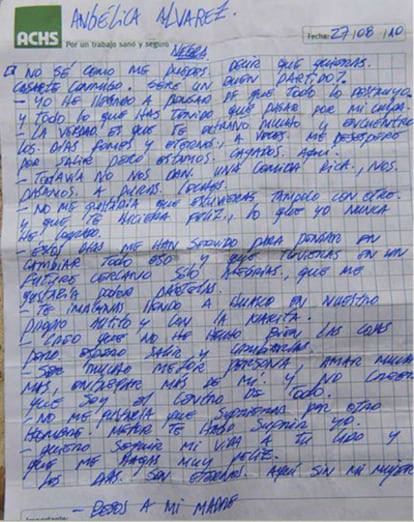 ANGÉLICA ALVAREZ.
ACHS
Por un trabajo sano y seguro
Fecha: 27/08/10
NEGRA.
NO SÉ COMO ME PUEDES DECIR QUE QUIERAS
CASARTE CONMIGO. SERE UN BUEN PARTIDO?
- YO HE LLEGADO A PENSAR DE QUE TODO LO DESTRUYO
Y TODO LO QUE HAS TENIDO QUE PASAR POR MI CULPA
- LA VERDAD ES QUE TE EXTRAÑO MUCHO Y ENCUENTRO
LOS DIAS FOMES Y ETERNOS, A VECES ME DESESPERO
POR SALIR PERO ESTAMOS CAGADOS AQUÍ.
- TODAVIA NO NOS DAN UNA COMIDA RICA, NOS
PASAMOS A PUROS
- NO ME GUSTARIA QUE ESTUVIERAS TAMPOCO CON OTRO
Y QUE TE HICIERA FELIZ, LO QUE YO NUNCA
HE LOGRADO.
- ESTOS DIAS ME HAN SERVIDO PARA PENSAR EN
CAMBIAR TODO ESO Y QUE TUVIERAS EN UN
FUTURO CERCANO SOLO ALEGRIAS, QUE ME
GUSTARIA PODER
- TE IMAGINAS LLENDO A HUASCO EN NUESTRO
PROPIO AUTITO Y CON LA ÑAÑITA.
- CREO QUE NO HE HECHO BIEN LAS COSAS
PERO ESPERO SALIR Y CAMBIARLAS
- SER MUCHO MEJOR PERSONA, AMAR MUCHO
MAS, ENTREGAR MAS DE MI. Y NO CREER
QUE SOY EL CENTRO DE TODO.
- NO ME GUSTARIA QUE SUFRIERAS POR OTRO
HOMBRE. MEJOR TE HAGO SUFRIR YO.
- QUIERO SEGUIR MI VIDA A TU LADO Y
QUE ME HAGAS MUY FELIZ.
LOS DIAS SON ETERNOS AQUÍ SIN MI MUJER
- BESOS A MI MADRE